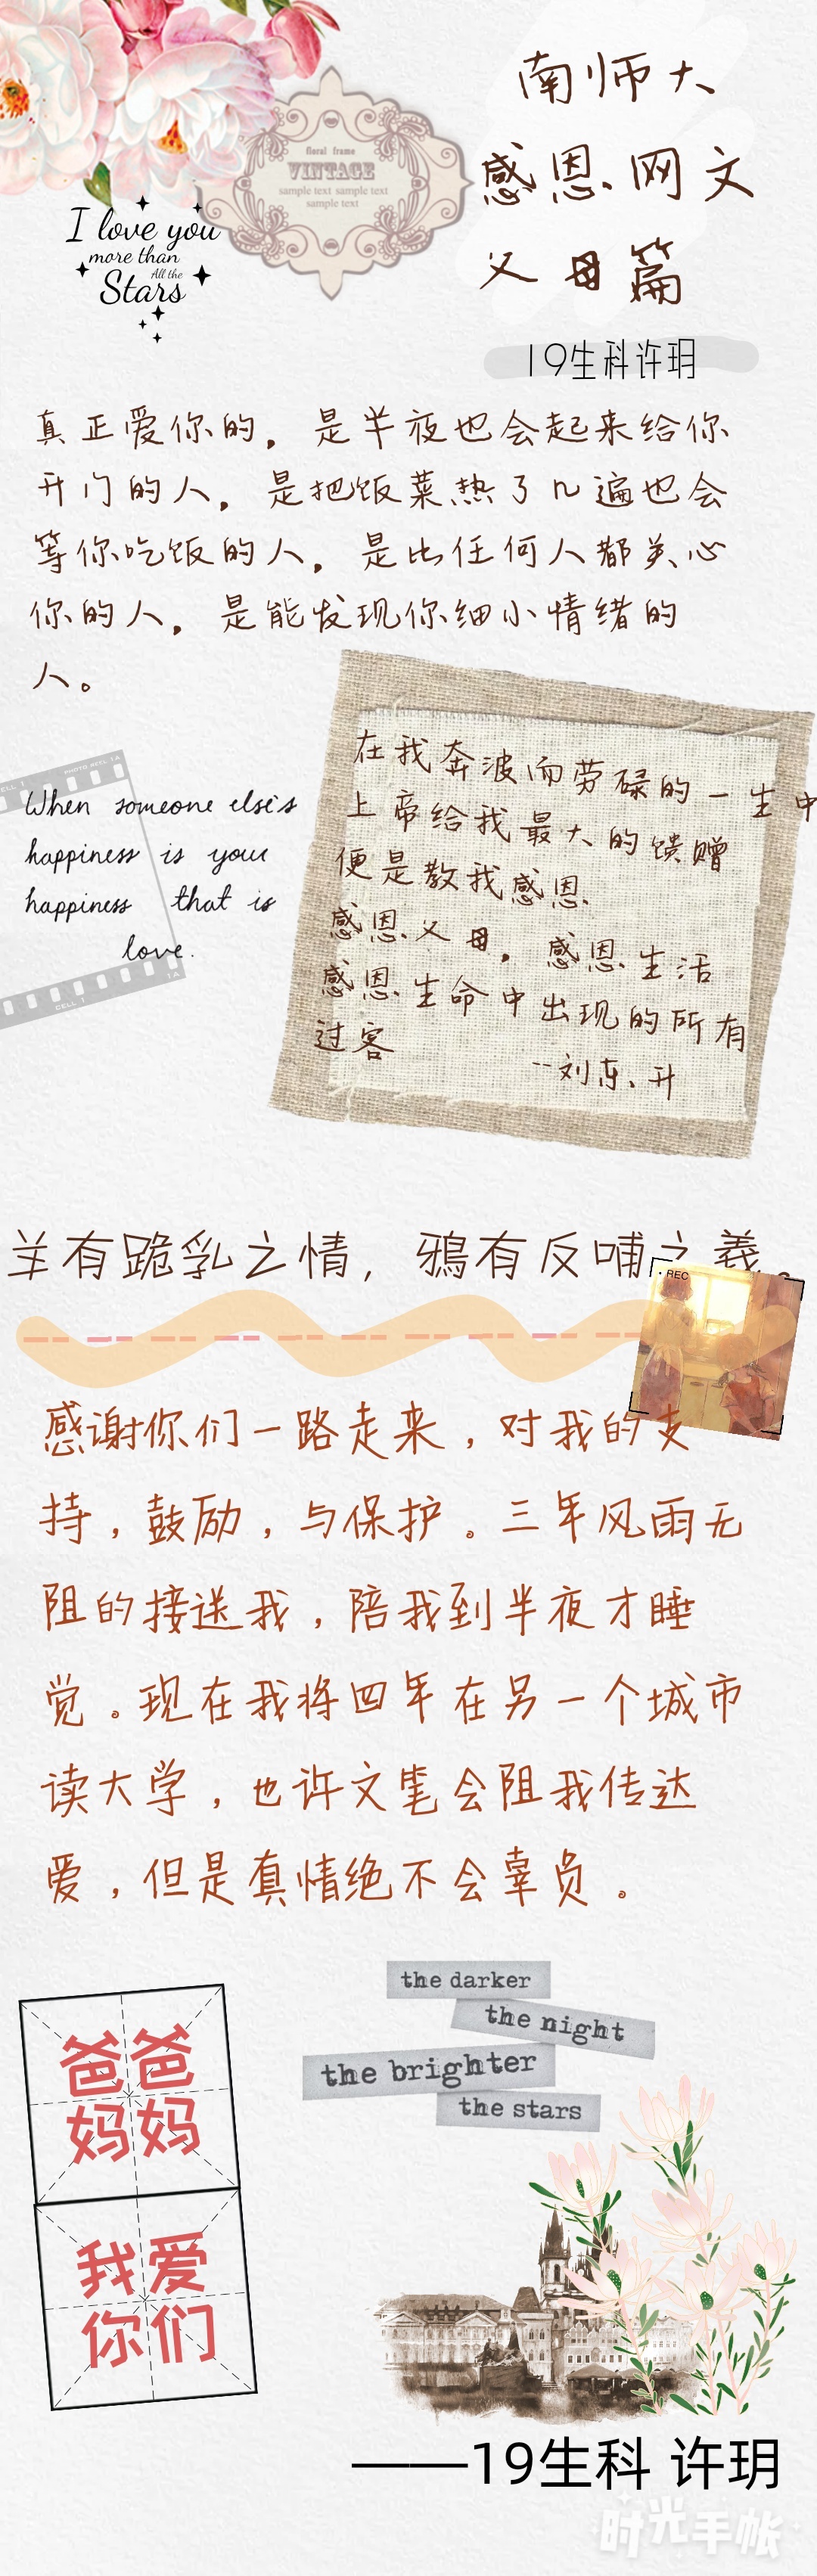 南师大
感恩网文
父母篇
floral frame
VINTAGE
sample text sample text
sample text
I love you
more than
All the
Stars
19生科许玥
真正爱你的，是半夜也会起来给你
开门的人，是把饭菜热了几遍也会
等你吃饭的人，是比任何人都关心
你的人，是能发现你细小情绪的
人。
PHOTO REEL 1A
CELL 1
When someone else's
happiness is your
happiness that is
love.
CELL 1
1A
在我奔波而劳碌的一生中
上帝给我最大的馈赠
便是教我感恩
感恩父母，感恩生活
感恩生命中出现的所有
过客
--刘东升
羊有跪乳之情，鴉有反哺之義。
REC
感谢你们一路走来，对我的支
持，鼓励，与保护。三年风雨无
阻的接送我，陪我到半夜才睡
觉。现在我将四年在另一个城市
读大学，也许文笔会阻我传达
爱，但是真情绝不会辜负。
the darker
the night
the brighter
the stars
爸爸
妈妈
我爱
你们
——19生科 许玥
时光手帐